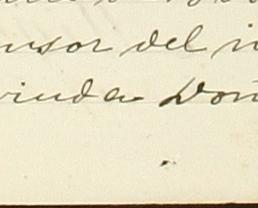 nsor del i
viuda Don